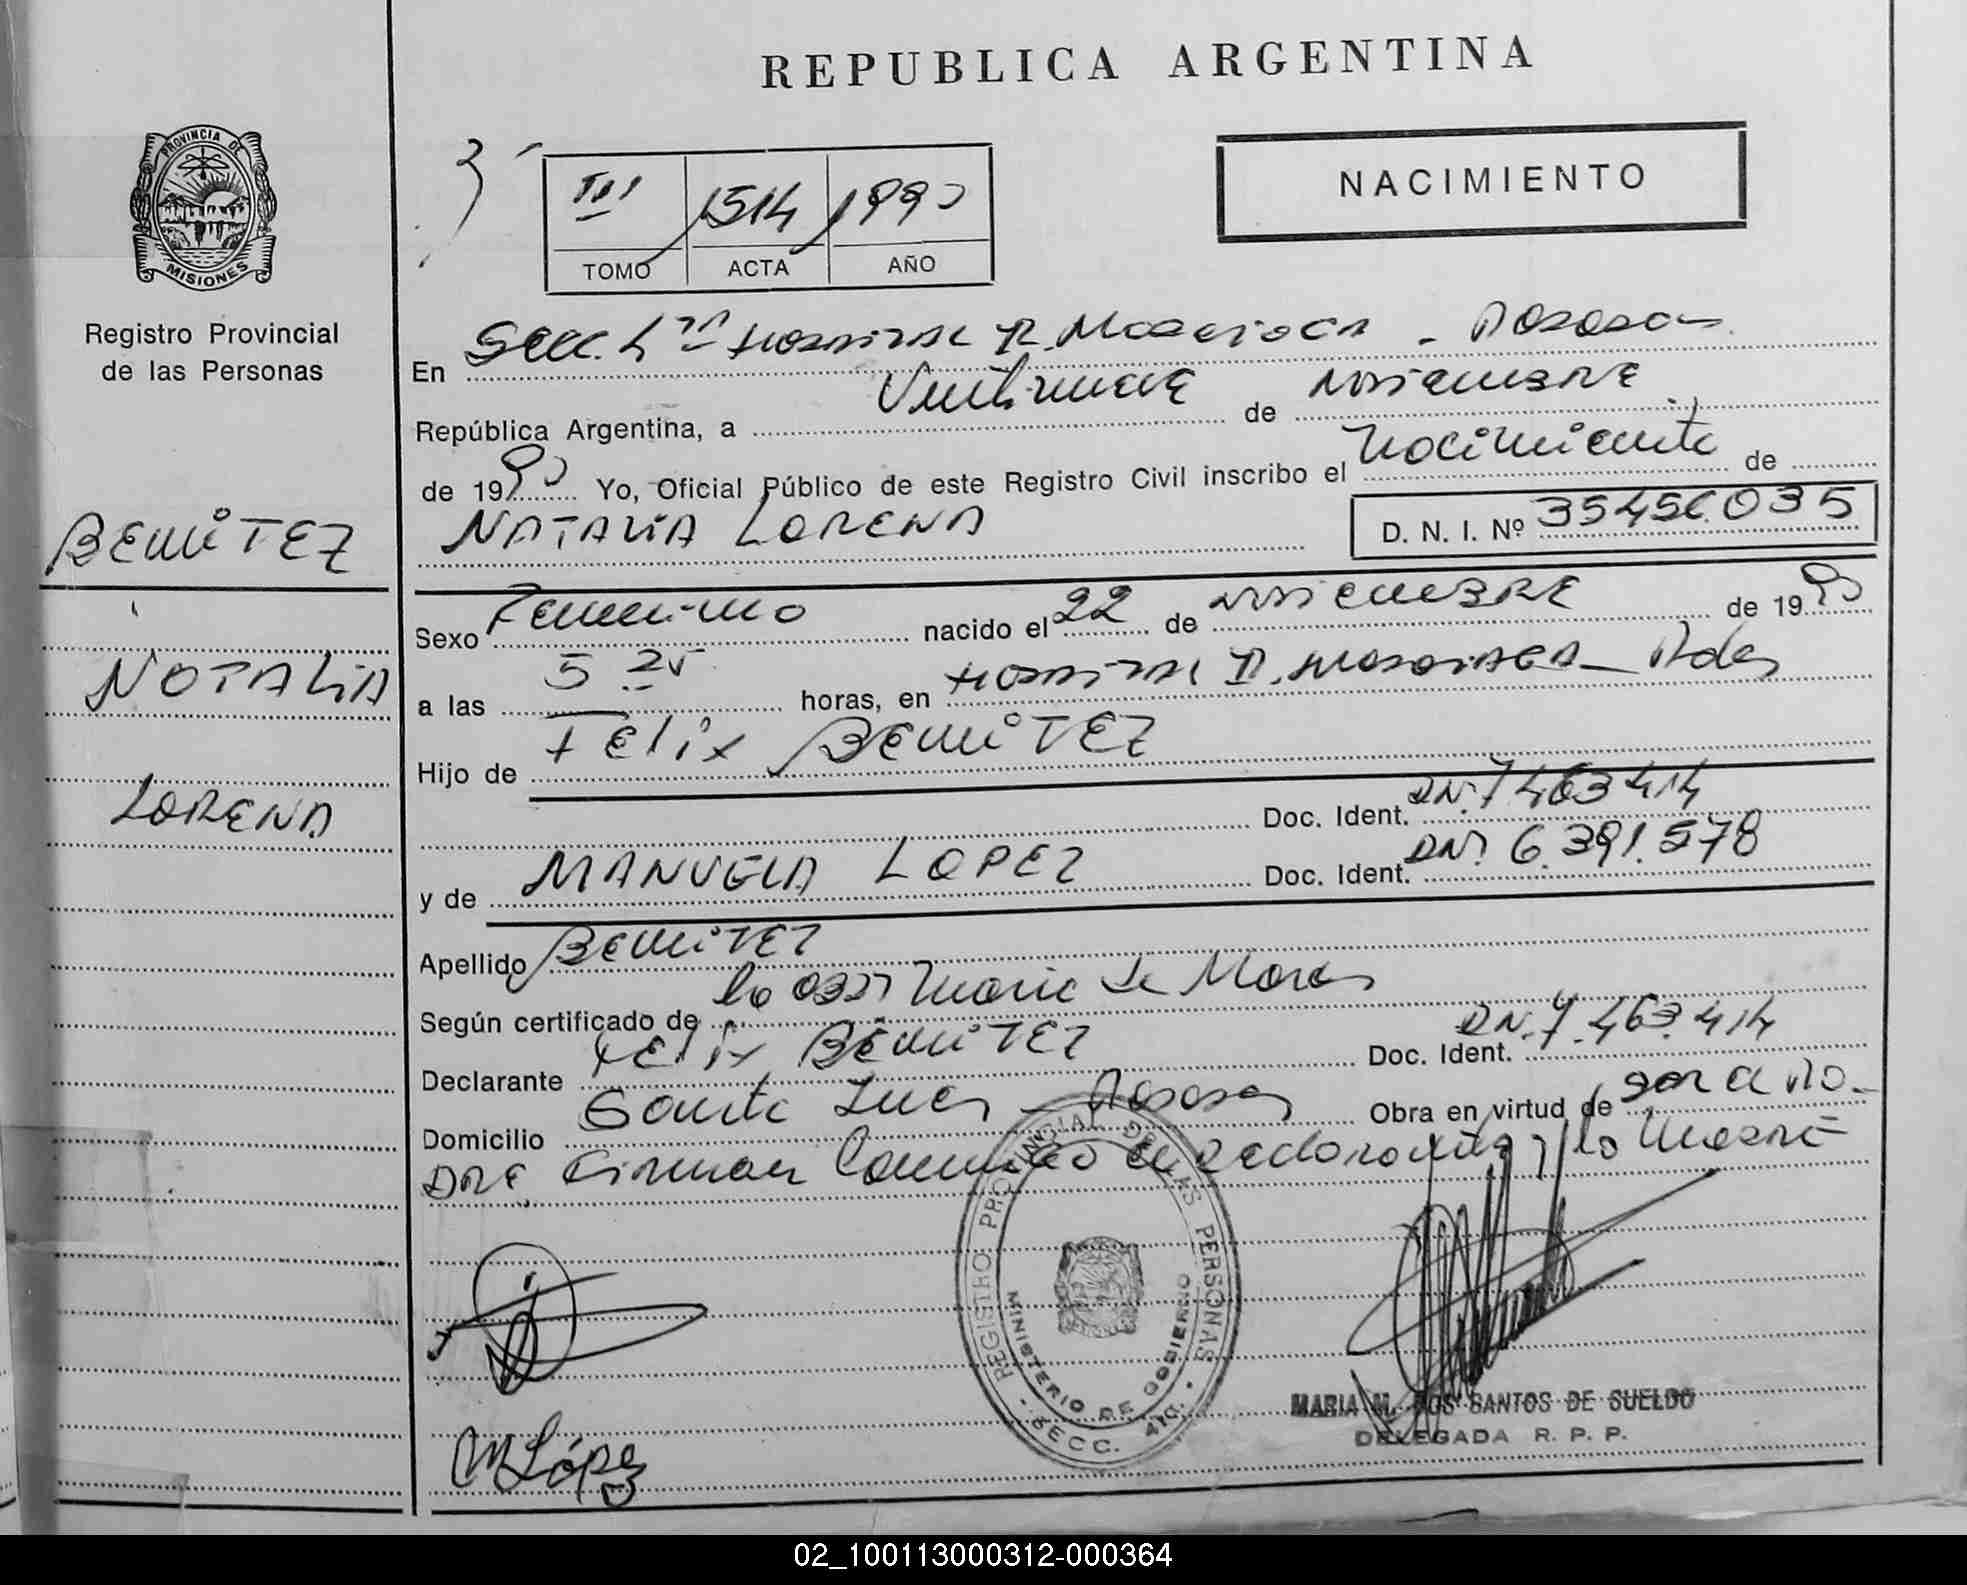 REPUBLICA ARGENTINA
PROVINCIA DE
MISIONES
Registro Provincial
de las Personas
III 1514 1990
TOMO ACTA AÑO
NACIMIENTO
En Secc. Hospital R. Posadas
República Argentina, a Veintinueve de Noviembre
de 1990 Yo, Oficial Público de este Registro Civil inscribo el Nacimiento de
NATALIA LORENA D. N. I. Nº 35456035
BENITEZ
NATALIA
LORENA
Sexo Femenino nacido el 22 de Noviembre de 1990
a las 5 25 horas, en Hospital R. Pdas
Hijo de Felix BENITEZ
Doc. Ident. DNI. 7.463.414
y de MANUELA LOPEZ Doc. Ident. DNI. 6.391.578
Apellido BENITEZ
Según certificado de la Obst Maria de
Declarante Felix BENITEZ Doc. Ident. DNI. 7.463.414
Domicilio Santa Ines - Posadas Obra en virtud de ser el PA-
DRE. Firman Conmigo el declarante y la Madre
REGISTRO PROVINCIAL DE LAS PERSONAS
MINISTERIO DE GOBIERNO
SECC.
M López
MARIA M. DOS SANTOS DE SUELDO
DELEGADA R. P. P.
02_100113000312-000364